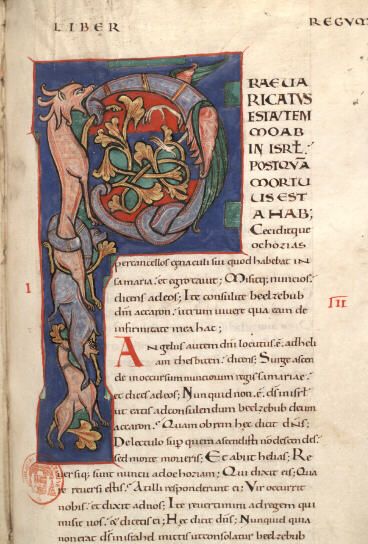 LIBER REGUM
PRAEUA
RICATUS
EST AUTEM
MOAB
IN ISRL.
POSTQUA
MORTU
US EST
AHAB;
Ceciditque
ochozias
per cancellos cenaculi sui quod habebat in
samaria. et egrotauit; Misitque nuncios.
dicens ad eos; Ite consulite beelzebub
dm accaron. utrum uiuere qua eam de
infirmitate mea hac;
I
III
Angelus autem dni locutus est. ad heli
am thesbiten. dicens; Surge ascen
de in occursum nunciorum regis samariae.
et dices ad eos; Nunquid non. e. ds in isrl
ut eatis ad consulendum beelzebub deum
accaron. Quam ob rem hec dicit dns;
De lectulo sup quem ascendisti non descendes.
sed morte morieris; Et abiit helias; Re
uersique sunt nuncii ad ochoziam; Qui dixit eis; Qua
re reuersi estis. At illi responderunt ei; Vir occurrit
nobis. et dixit ad nos; Ite reuertimini ad regem qui
misit uos. et dicetis ei; Hec dicit dns; Nunquid quia
non erat ds in isrl mittis ut consulatur beelzebub